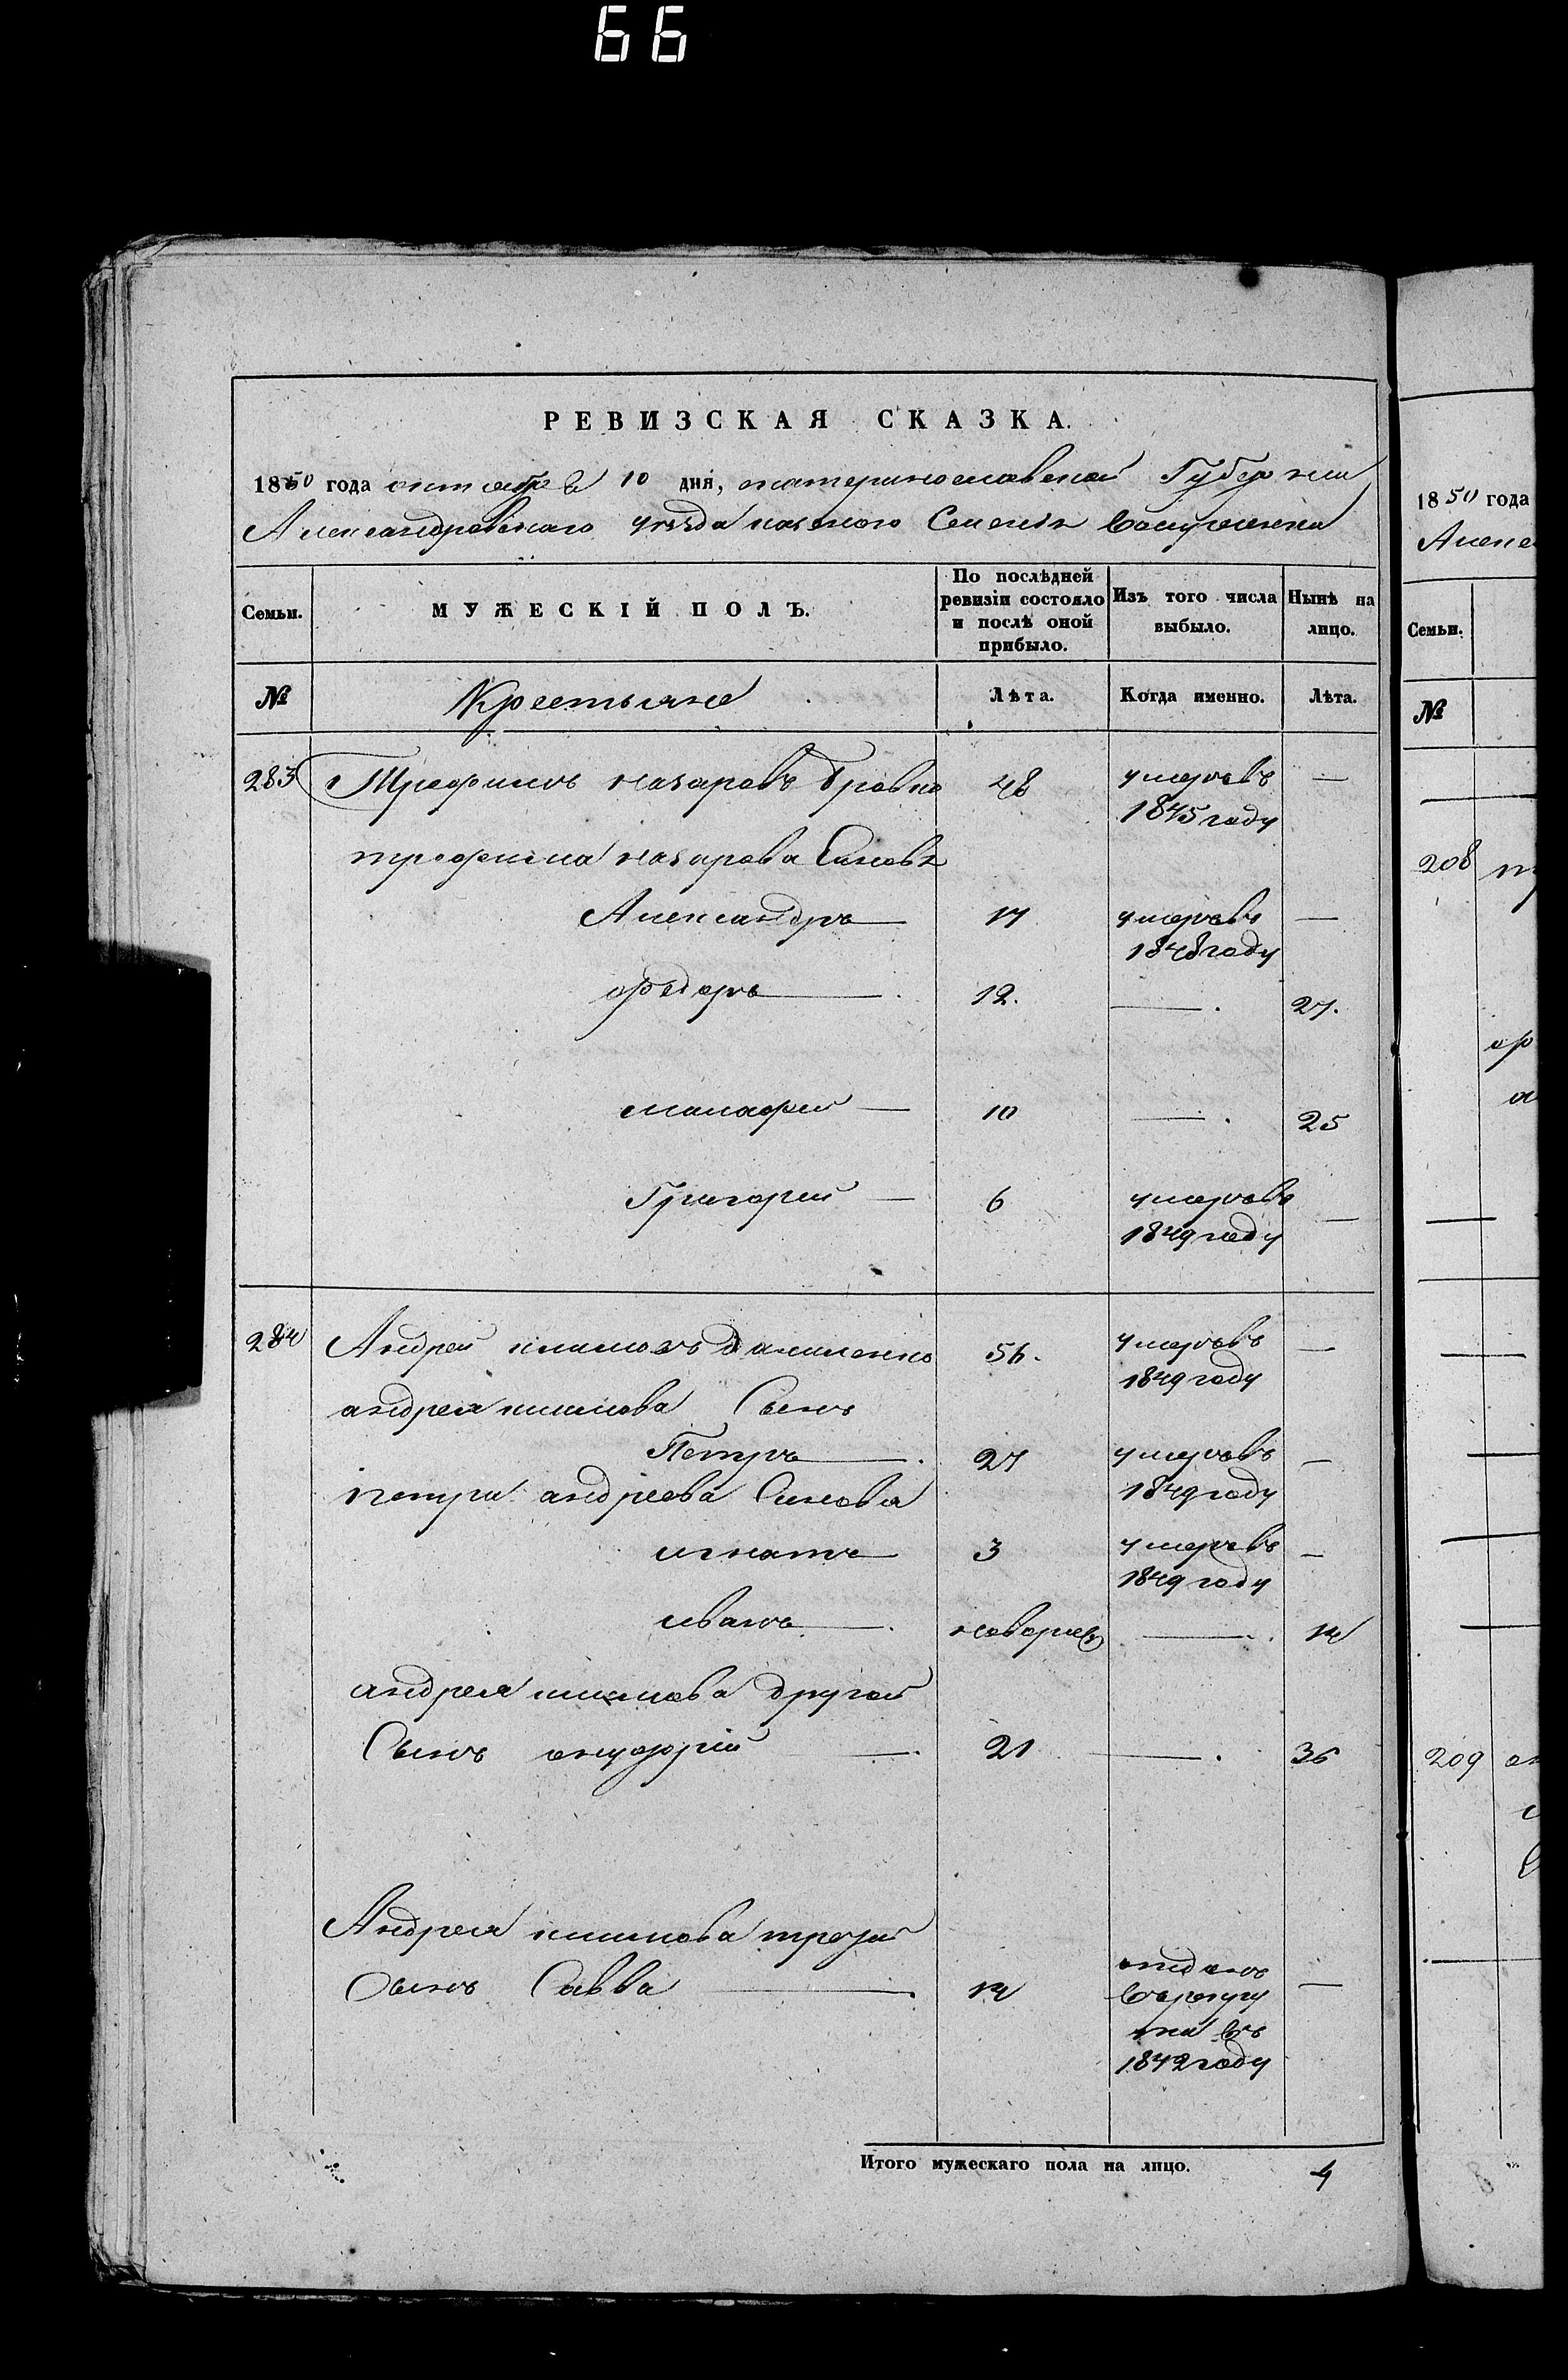 66
РЕВИЗСКАЯ СКАЗКА.
1850 года октября 10 дня, екатеринославской Губернии
Александровскаго уезда казеного Селения
Семьи.
МУЖЕСКІЙ ПОЛЪ.
По послѣдней ревизіи состояло и послѣ оной прибыло.
Изъ того числа выбыло.
Нынѣ на лицо.
№ Крестьяне Лѣта. Когда именно. Лѣта.
283 Трофимъ назаровъ бровко 48 умеръ въ —
1845 году
трофима назарова Сыновья
Александръ — 17 умеръ въ —
1848 году
федоръ — 12. — 27.
малафей — 10 — 25
Григорей — 6 умеръ въ —
1849 году
284 Андрей климовъ 56. умеръ въ —
1849 году
андрея климова Сынъ
Петръ — 27 умеръ въ —
петра андреева Сынова 1849 году
игнатъ — 3 умеръ въ —
1849 году
иванъ — новорож — 14
андрея климова другой
Сынъ онуфрій — 21 — 36
Андрея климова третий
Сынъ Савва — 14 отданъ —
в рекру
та въ
1842 году
Итого мужескаго пола на лицо. 4
1850 года
Алекс
Семьи.
№
208
209